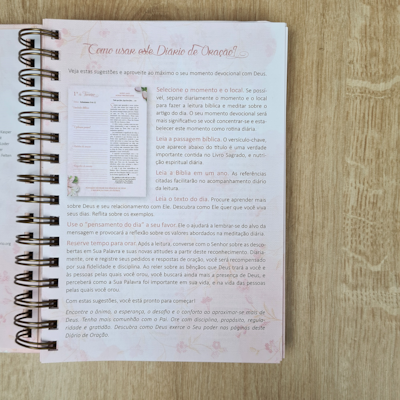 Como usar este Diário de Oração?
Veja estas sugestões e aproveite ao máximo o seu momento devocional com Deus.
Selecione o momento e o local. Se possí-
vel, separe diariamente o momento e o local
para fazer a leitura bíblica e meditar sobre o
artigo do dia. O seu momento devocional será
mais significativo se você concentrar-se e esta-
belecer este momento como rotina diária.
Leia a passagem bíblica. O versículo-chave,
que aparece abaixo do título é uma verdade
importante contida no Livro Sagrado, e nutri-
ção espiritual diária.
Leia a Bíblia em um ano. As referências
citadas facilitarão no acompanhamento diário
da leitura.
Leia o texto do dia. Procure aprender mais
sobre Deus e seu relacionamento com Ele. Descubra como Ele quer que você viva
seus dias. Reflita sobre os exemplos.
Use o "pensamento do dia" a seu favor. Ele o ajudará a lembrar-se do alvo da
mensagem e provocará a reflexão sobre os valores abordados na meditação diária.
Reserve tempo para orar. Após a leitura, converse com o Senhor sobre as desco-
bertas em Sua Palavra e suas novas atitudes a partir deste recomeço. Diaria-
mente, ore e registre seus pedidos e respostas de oração, você será recompensado
por sua fidelidade e disciplina. Ao reler sobre as bênçãos que Deus trará a você e
às pessoas pelas quais você orou, você buscará ainda mais a presença de Deus, e
perceberá como a Sua Palavra foi importante em sua vida, e na vida das pessoas
pelas quais você orou.
Com estas sugestões, você está pronto para começar!
Encontre o ânimo, a esperança, o desafio e o conforto ao aproximar-se mais de
Deus. Tenha mais comunhão com o Pai. Ore com disciplina, propósito, regula-
ridade e gratidão. Descubra como Deus exerce o Seu poder nas páginas deste
Diário de Oração.